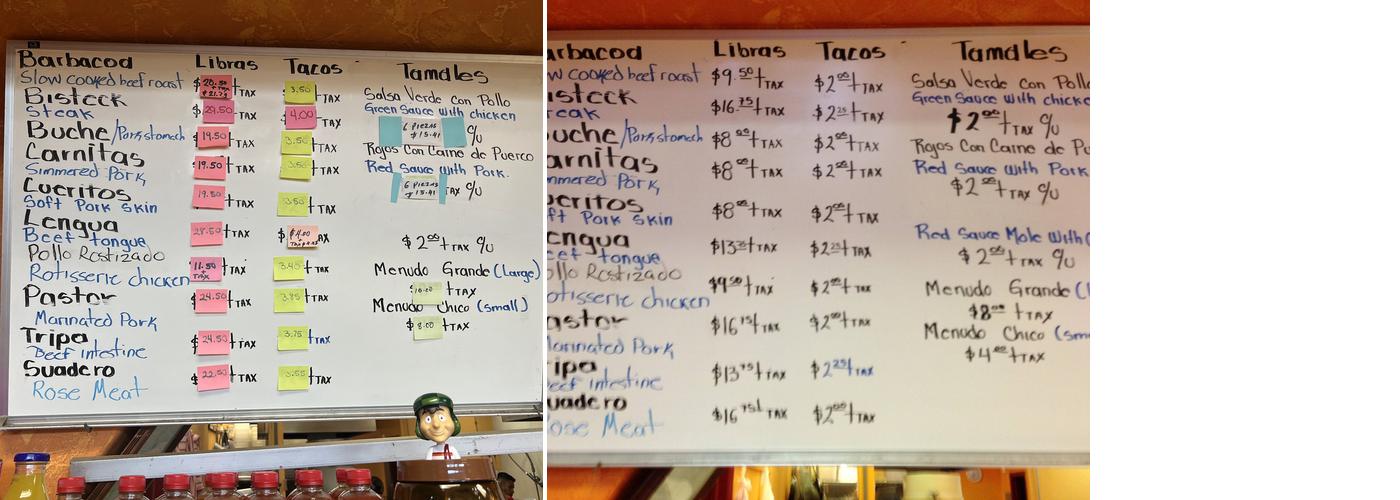 Barbacod Libras Tacos Tamales
Slow cooked beef roast $ 20.50 + TAX $21.79 + TAX 3.50 + TAX
Salsa Verde Con Pollo
Bisteck $ 29.50 + TAX 4.00 + TAX
Steak
Green Sauce with chicken
6 PIEZAS $15.41 c/u
Buche/Pork stomach $ 19.50 + TAX 3.50 + TAX
Rojos Con Carne de Puerco
Carnitas $ 19.50 + TAX 3.50 + TAX
Simmered Pork
Red Sauce with Pork.
6 PIEZAS $15.41 TAX c/u
Cueritos 19.50 + TAX 3.50 + TAX
Soft Pork Skin
Lengua 28.50 + TAX $ $4.00 AX
Beef tongue
$2.00 + TAX c/u
Pollo Rostizado
Rotisserie chicken 11.50 + TAX + TAX 3.40 + TAX
Menudo Grande (Large)
$ + TAX
Pastor $ 24.50 + TAX + TAX
Marinated Pork
Menudo Chico (small)
$ 8.00 + TAX
Tripa $ 24.50 + TAX 3.75 + TAX
Beef intestine
Suadero $ 22.50 + TAX + TAX
Rose Meat
arbacod Libras Tacos Tamales
w cooked beef roast $9.50 + TAX $2.00 + TAX
Salsa Verde con Pollo
isteck $16.75 + TAX $2.25 + TAX
eak
Green Sauce with chicke
$2.00 + TAX c/u
uche/Pork stomach $8.00 + TAX $2.00 + TAX
Rojos Con Carne de Pu
arnitas $8.00 + TAX $2.00 + TAX
mmered Pork
Red Sauce with Pork
$2.00 + TAX c/u
ueritos $8.00 + TAX $2.00 + TAX
ft Pork Skin
engua $13.25 + TAX $2.25 + TAX
eef tongue
Red Sauce Mole with C
$2.00 + TAX c/u
ollo Rostizado
otisserie chicken $9.50 + TAX $2.00 + TAX
Menudo Grande (L
$8.00 + TAX
astor $16.75 + TAX $2.00 + TAX
arinated Pork
Menudo Chico (sm
$4.00 + TAX
ipa $13.75 + TAX $2.25 + TAX
eef intestine
uadero $16.75 + TAX $2.00 + TAX
ose Meat